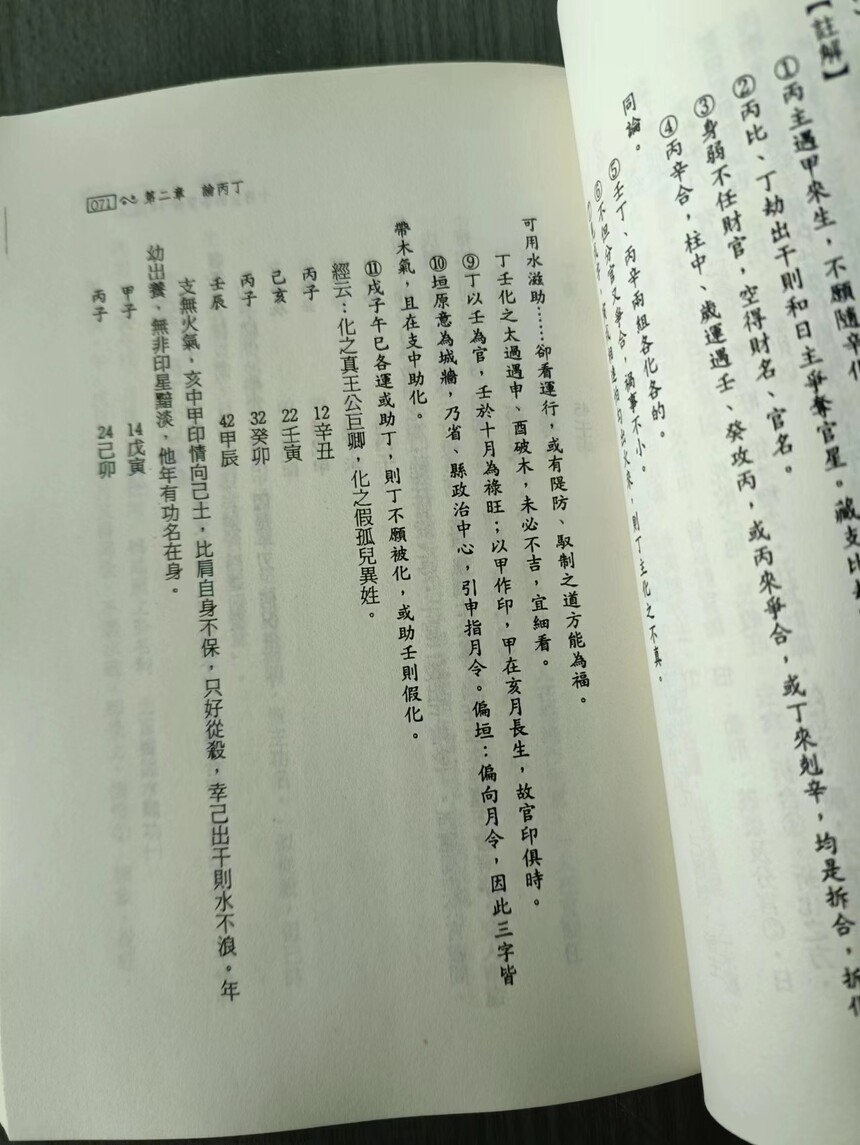 【註解】
①丙主遇甲來生，不願隨辛化
②丙比、丁劫出干則和日主爭奪官星。藏支比
③身弱不任財官，空得財名、官名。
④丙辛合，柱中、歲運遇壬、癸攻丙，或丙來爭合，或丁來剋辛，均是拆合，拆
同論。
⑤壬丁、丙辛兩組各化各的。
⑥不但分官又爭合，禍事不小。
則丁主化之不真。
可用水滋助……卻看運行，或有隄防、馭制之道方能為福。
丁壬化之太過遇申、酉破木，未必不吉，宜細看。
⑨丁以壬為官，壬於十月為祿旺；以甲作印，甲在亥月長生，故官印俱時。
⑩垣原意為城牆，乃省、縣政治中心，引申指月令。偏垣：偏向月令，因此三字皆
帶木氣，且在支中助化。
⑪戌子午巳各運或助丁，則丁不願被化，或助壬則假化。
經云：化之真王公巨卿，化之假孤兒異姓。
丙子 12辛丑
己亥 22壬寅
丙子 32癸卯
壬辰 42甲辰
支無火氣，亥中甲印情向己土，比肩自身不保，只好從殺，幸己出干則水不浪。年
幼出養、無非印星黯淡，他年有功名在身。
甲子 14戊寅
丙子 24己卯
071 第二章 論丙丁